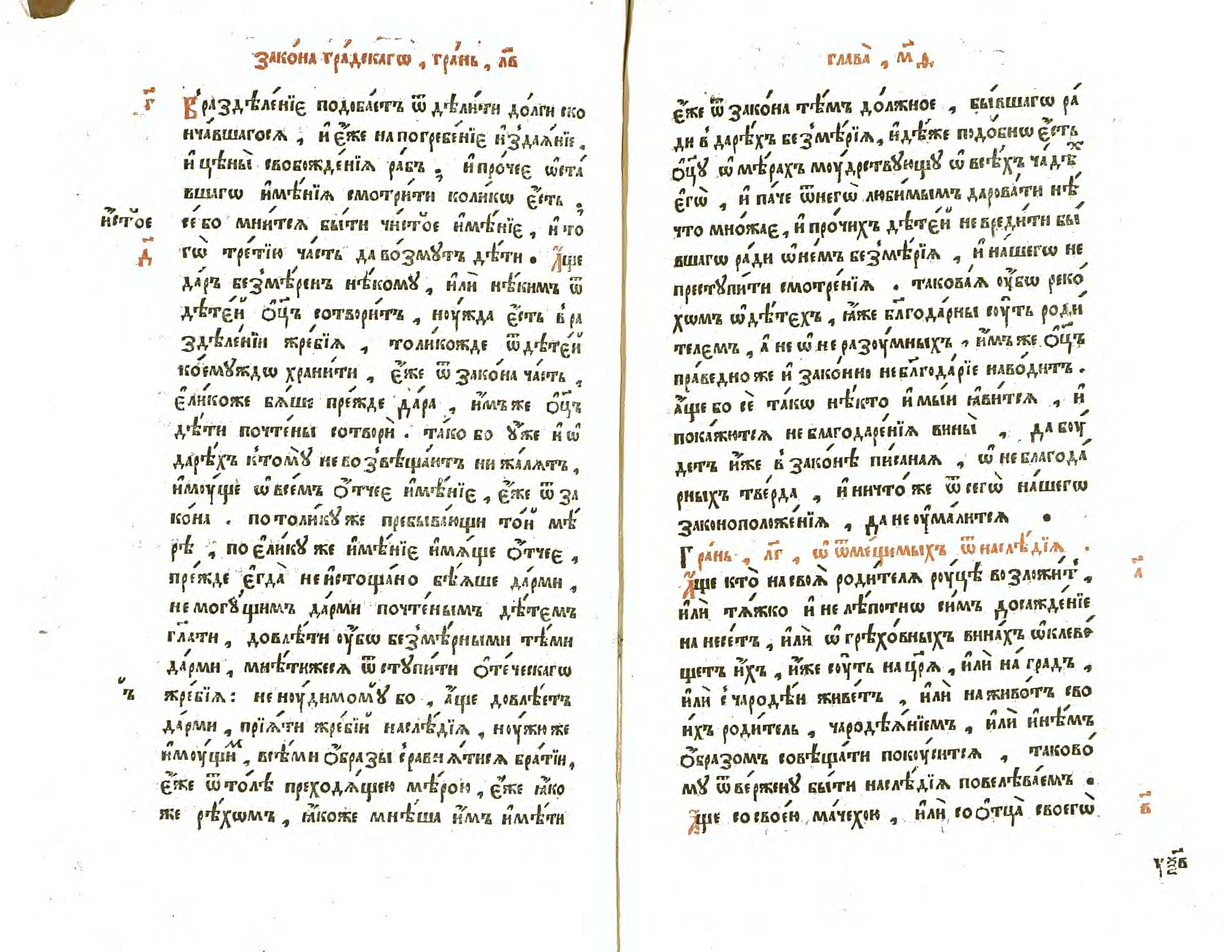 Зако́на гра́дскагѡ , гра́нь , л҃в
г҃
В̾ раздѣле́нїє подоба́єтъ ѿ дѣли́ти до́лги ско
нча́вшагосѧ , и҆ є҆́же на погребе́нїє и҆зда́нїє ,
и҆ цѣны̀ свобожде́нїѧ ра́бъ , и҆ про́чеє ѡ҆ста́
вшагѡ и҆мѣ́нїѧ смотри́ти коли́кѡ є҆́сть ,
и҆́стое
се́ бо мни́тсѧ бы́ти чи́стое и҆мѣ́нїє , и҆ то
д҃
гѡ̀ тре́тїю ча́сть да во́змутъ дѣ́ти . А҆́ще
да́ръ безмѣ́ренъ нѣ́кому , и҆лѝ нѣ́кимъ ѿ
дѣте́й ѻ҆ц҃ъ сотвори́тъ , ноу́жда є҆́сть в̾ ра
здѣле́нїи жре́бїѧ , толи́кожде ѿ дѣте́й
ко́емуждѡ храни́ти , є҆́же ѿ зако́на ча́сть ,
є҆ли́коже бѧ́ше пре́жде да́ра , и҆́мъ же ѻ҆ц҃ъ
дѣ́ти почте́ны сотворѝ . та́ко бо у҆́же и҆ ѡ҆
да́рѣхъ к̾ тому̀ не возвѣща́ютъ ни жа́лѧтъ ,
и҆мꙋ́ще ѡ҆ все́мъ ѻ҆́тчее и҆мѣ́нїє , є҆́же ѿ за
ко́на . по толи́ку же пребыва́ющи то́й мѣ́
рѣ , по є҆ли́ку же и҆мѣ́нїє и҆мѧ́ше ѻ҆́тчее ,
пре́жде є҆гда̀ не и҆стощано бѣѧ́ше да́рми ,
не могу́щимъ да́рми почте́нымъ дѣ́темъ
гл҃ати , довлѣ́ти оу҆́бѡ безмѣ́рными тѣ́ми
да́рми , мнѣ́тижесѧ ѿступи́ти ѻ҆те́ческагѡ
ъ
жре́бїѧ : не ноу́димому бо , а҆́ще довлѣ́єтъ
да́рми , прїѧ́ти жре́бїй наслѣ́дїѧ , ноу́жи же
и҆моу́щимъ , всѣ́ми ѻ҆́бразы сравнѧ́тисѧ бра́тїи ,
є҆́же ѿто́лѣ преходѧ́щею мѣ́рою , є҆́же ꙗ҆́ко
же рѣ́хѡмъ , ꙗ҆́коже мнѣ́ша и҆̀мъ и҆мѣ́ти
глава̀ , м҃д ,
є҆́же ѿ зако́на тѣ́мъ до́лжное , бы́вшагѡ ра́
ди в̾ да́рѣхъ безмѣ́рїѧ , и҆дѣ́же подо́бнѡ є҆́сть
ѻ҆ц҃у ѡ҆ мѣ́рахъ моу́дрствующу ѡ҆ всѣ́хъ ча́дѣхъ
є҆гѡ̀ , и҆ па́че ѿ негѡ̀ люби́мымъ дарова́ти нѣ́
что мно́жае , и҆ про́чихъ дѣте́й не вреди́ти бы́
вшагѡ ра́ди ѡ҆ не́мъ безмѣ́рїѧ , и҆ на́шегѡ не
преступи́ти смотре́нїѧ . такова́ѧ оу҆́бѡ реко́
хѡмъ ѡ҆ дѣ́тєхъ , ꙗ҆́же бл҃года́рны соу́ть роди́
телємъ , а҆ не ѡ҆ неразоу́мныхъ , и҆́мъ же ѻ҆ц҃ъ
пра́ведно же и҆ зако́нно небл҃года́рїе наво́дитъ .
а҆́ще бо сѐ та́кѡ нѣ́кто и҆мы́и ꙗ҆ви́тсѧ , и҆
пока́жютсѧ неблагодаре́нїѧ вины̀ , да боу́
детъ и҆́же в̾ зако́нѣ пи́санаѧ , ѡ҆ неблагода́
рныхъ тве́рда , и҆ ничто́же ѿ сегѡ̀ на́шегѡ
законоположе́нїѧ , да не оу҆мали́тсѧ .
Гра́нь , л҃г , ѡ҆ ѿме́щемыхъ ѿ наслѣ́дїѧ .
а҃
А҆́ще кто̀ на своѧ̀ роди́телѧ роу́цѣ возложи́тъ ,
и҆лѝ тѧ́жко и҆ нелѣ́потнѡ си́мъ досажде́нїе
нанесе́тъ , и҆лѝ ѡ҆ грѣхо́вныхъ вина́хъ ѡ҆клеве́
щетъ и҆́хъ , и҆́же соу́ть на цр҃ѧ̀ , и҆лѝ на́ градъ ,
и҆лѝ с̾ чародѣ́и живе́тъ , и҆лѝ на живо́тъ сво
и҆́хъ роди́тель , чародѣѧ́нїемъ , и҆лѝ и҆нѣ́мъ
ѻ҆́бразомъ совѣща́ти покоуси́тсѧ , таково́
му ѿве́ржену бы́ти наслѣ́дїѧ повелѣва́емъ .
в҃
А҆́ще со свое́ю ма́чехою , и҆лѝ со ѻ҆тца̀ своегѡ̀
у҃ѯв